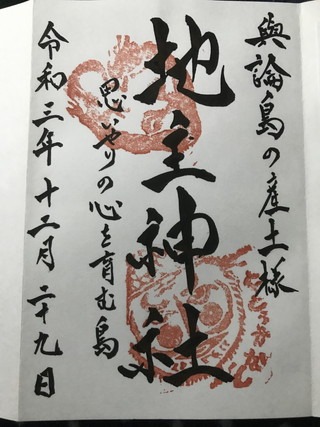 與論島の産土様
地主神社
思いやりの心を育む島
令和三年十二月二十九日